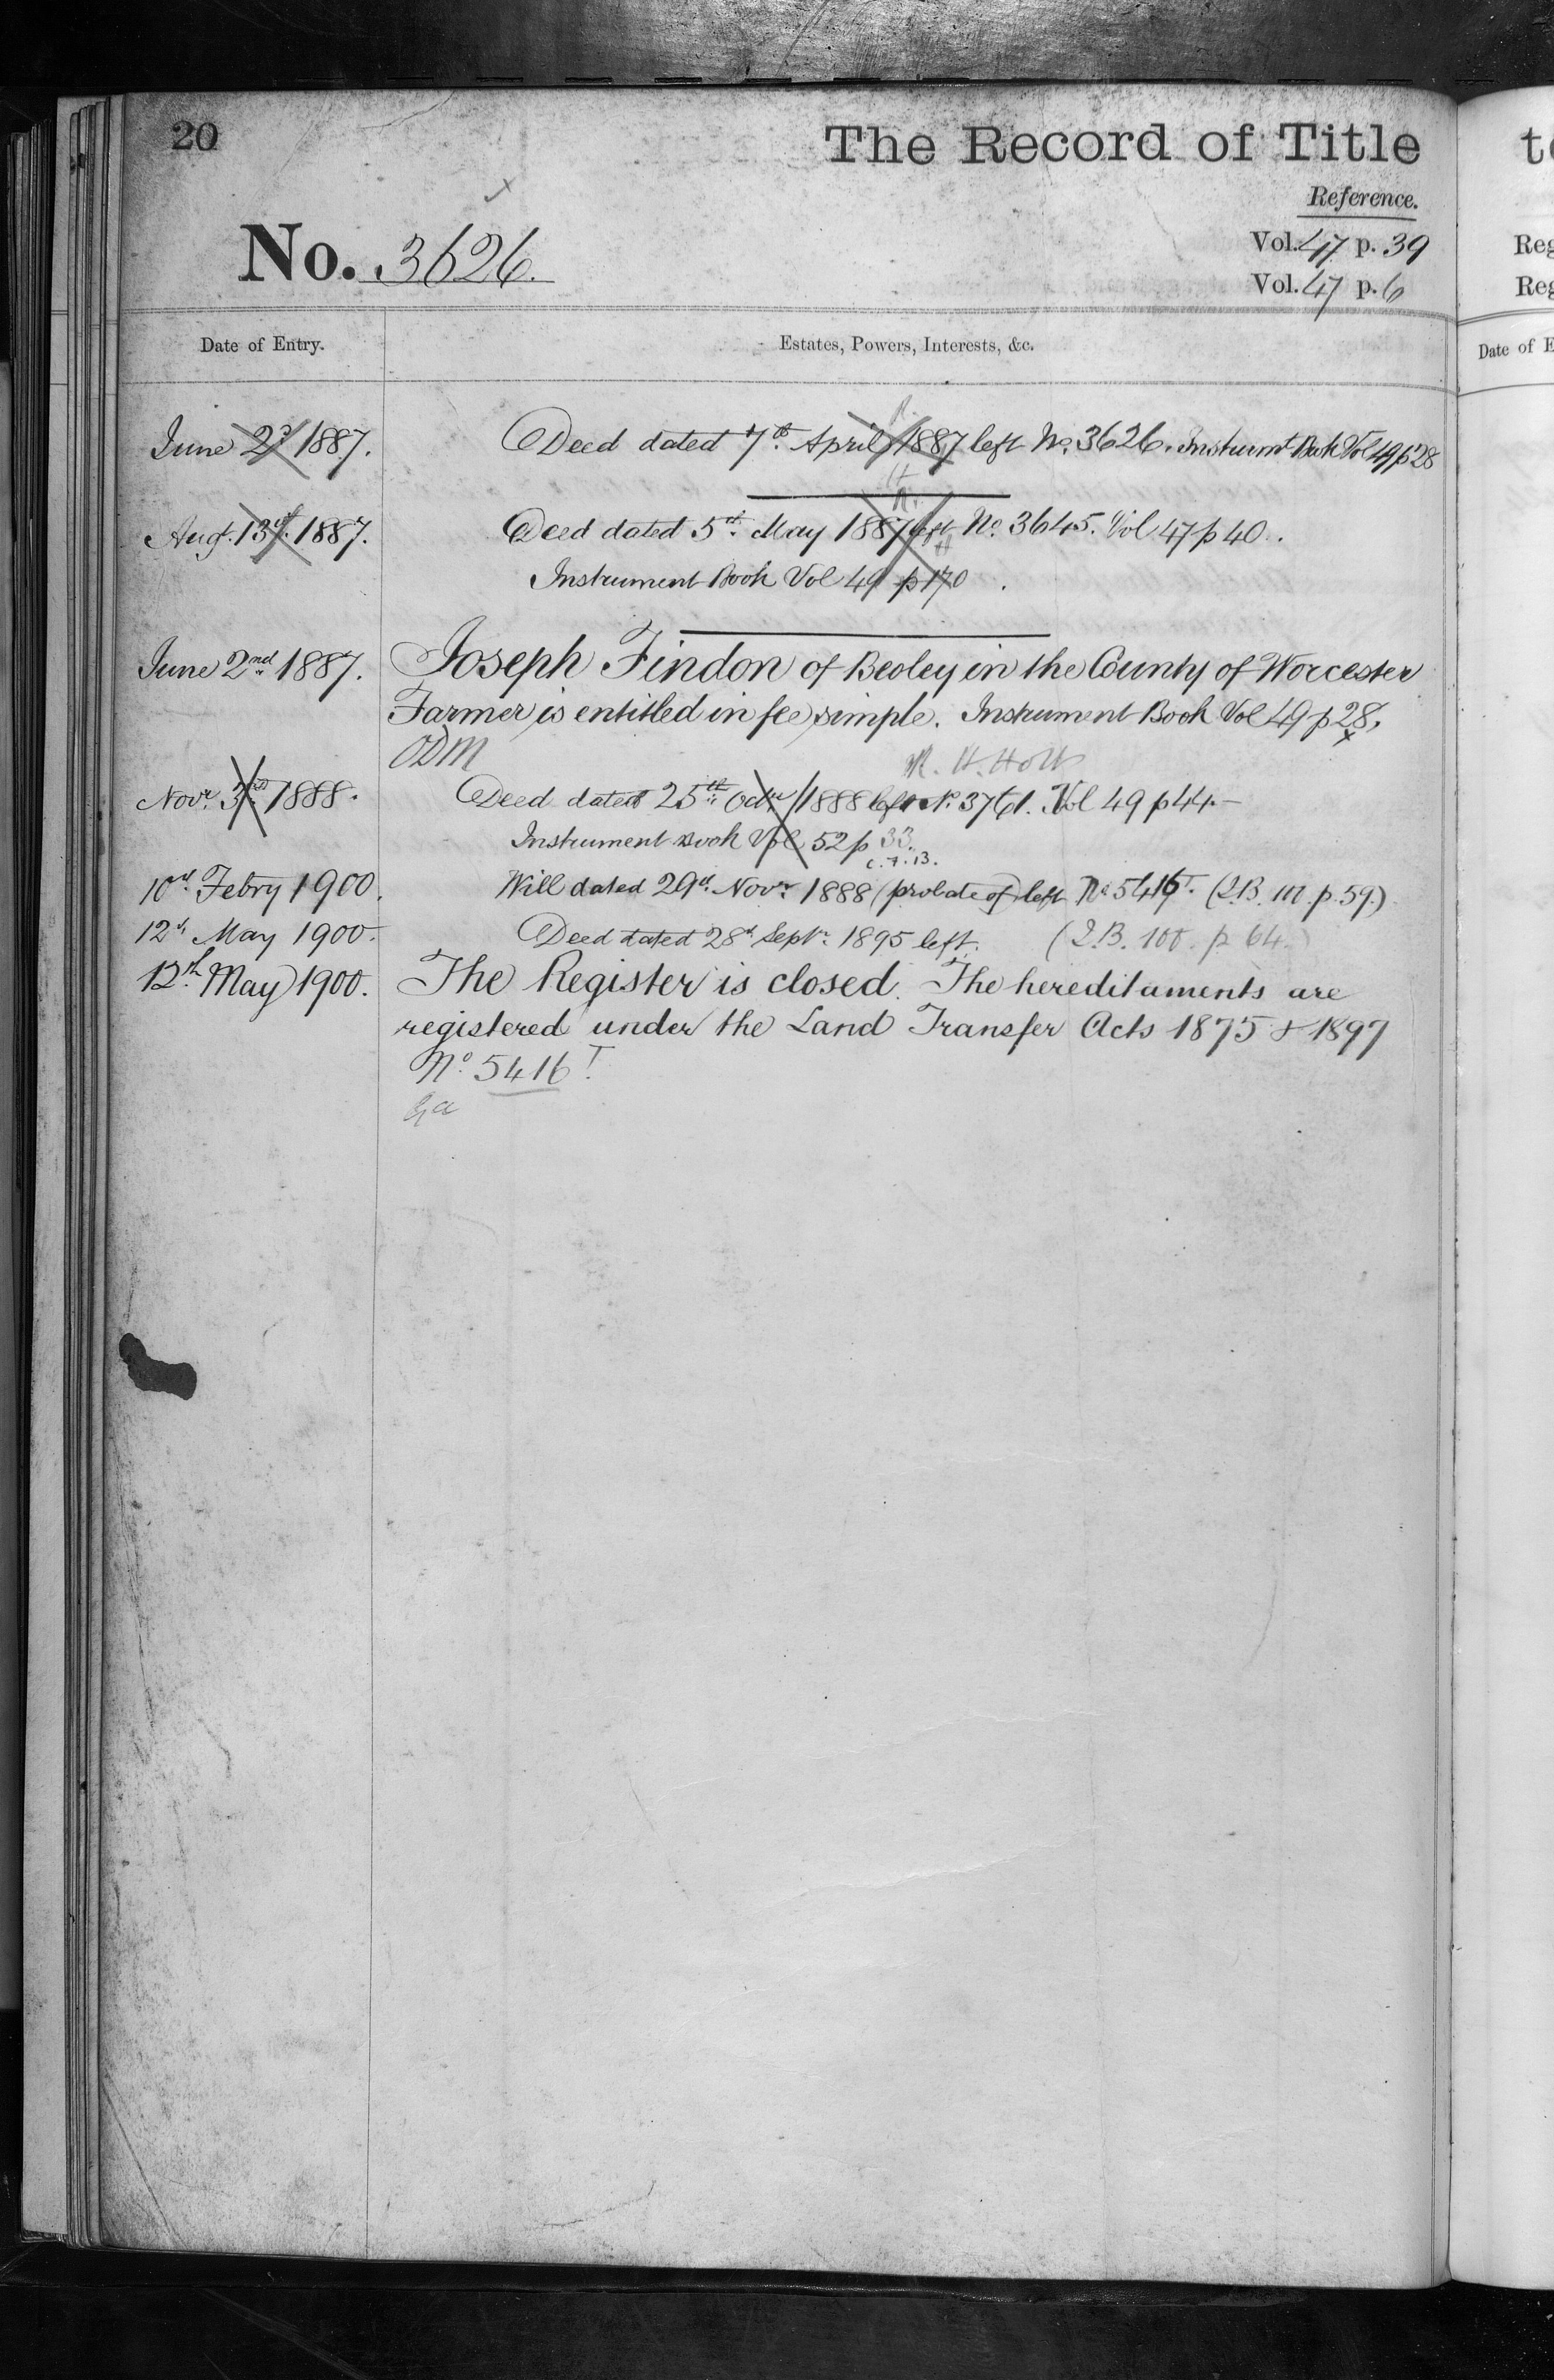 20
The Record of Title
Reference.
No. 3626.
Vol. 47 p. 39
Vol. 47 p. 6
Date of Entry.
Estates, Powers, Interests, &c.
June 2d 1887.
Deed dated 7th April 1887 left No. 3626. Instrumt Book Vol 49 p 28
Aug. 13th. 1887.
Deed dated 5th. May 1887 left No. 3645. Vol 47 p 40.
Instrument Book Vol 49 p 170.
June 2nd 1887.
Joseph Findon of Beoley in the County of Worcester
Farmer is entitled in fee simple. Instrument Book Vol 49 p 28.
ODM
R. H. Holt
Novr. 3rd 1888.
Deed dated 25th Octr. 1888 left No. 3761. Vol 49 p 44.
Instrument Book Vol 52 p 33.
10th Febry 1900.
Will dated 29th. Novr. 1888 (probate of) left No 5416T. p. 59.)
12th May 1900.
Deed dated 28th Septr. 1895 left. p. 64.)
12th May 1900.
The Register is closed. The hereditaments are
registered under the Land Transfer Acts 1875 & 1897
No. 5416T.
to
Reg
Reg
Date of E